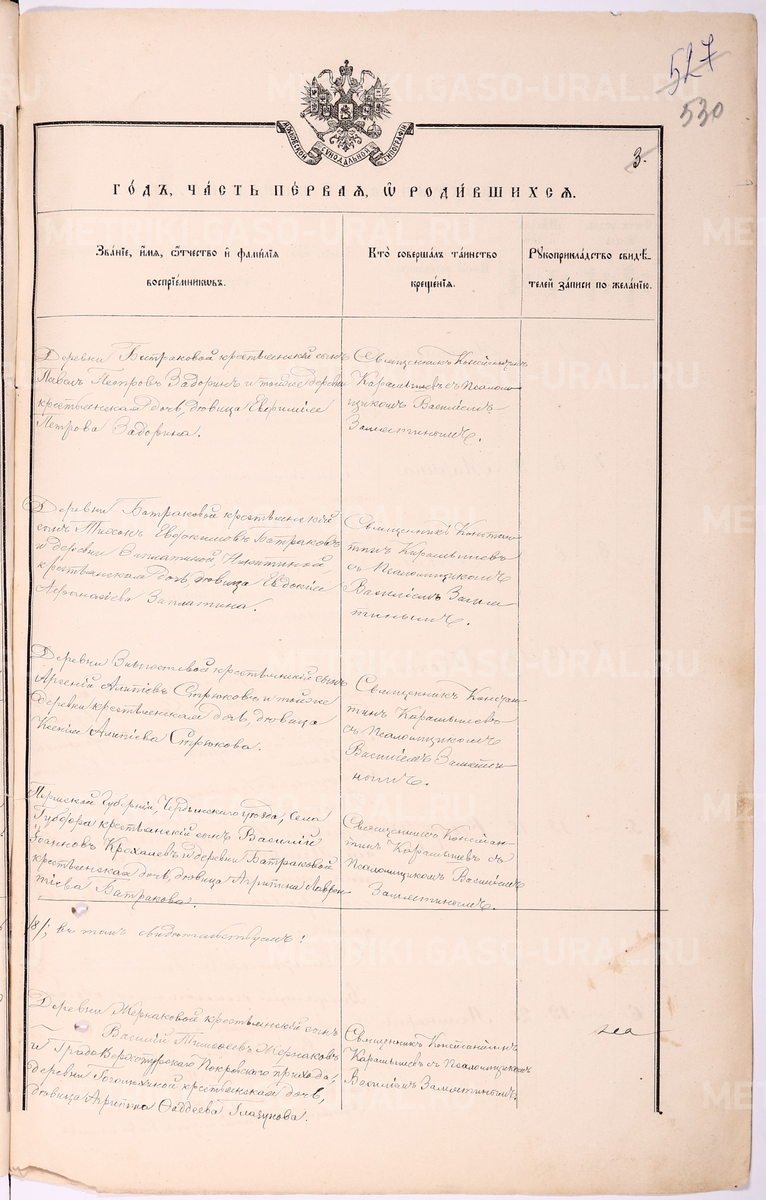 527
530
МОСКОВСКОЙ СѴНОДАЛЬНОЙ ТИПОГРАФІИ
3.
ГОДЪ, ЧАСТЬ ПЕРВАЯ, Ѡ РОДИВШИХСЯ.
Званіе, имя, ѿчество и фамилія
воспріемниковъ.
Кто совершалъ таинство
крещенія.
Рукоприкладство свидѣ-
телей записи по желанію.
Деревни Батраковой крестьянскій сынъ
Павелъ Петровъ Задоринъ и тойже деревни
крестьянская дочь, дѣвица Евфимія
Петрова Задорина.
Священникъ Константинъ
Карамышевъ съ Псалом-
щикомъ Василіемъ
Замятинымъ.
Деревни Батраковой крестьянскій
сынъ Тихонъ Евдокимовъ Батраковъ
и деревни Заплатиной
крестьянская дочь, дѣвица Евдокія
Афонасіева Заплатина.
Священникъ Констан-
тинъ Карамышевъ
съ Псаломщикомъ
Василіемъ Замя-
тинымъ.
Деревни крестьянскій сынъ
Арсеній Алипіевъ Стрюковъ и тойже
деревни крестьянская дочь, дѣвица
Ксенія Алипіева Стрюкова.
Священникъ Констан-
тинъ Карамышевъ
съ Псаломщикомъ
Василіемъ Замяти-
нымъ.
Пермской Губерніи, Чердынскаго уѣзда, села
Губдора крестьянскій сынъ Василій
Іоанновъ Крохалевъ и деревни Батраковой
крестьянская дочь, дѣвица Агрипина Лаврен-
тіева Батракова.
Священникъ Констан-
тинъ Карамышевъ съ
Псаломщикомъ Василіемъ
Замятинымъ.
/8/; въ томъ свидѣтельствуемъ!
Деревни Жернаковой крестьянскій сынъ
Василій Тимофеевъ Жернаковъ
и Градо Верхотурскаго Покровскаго прихода,
деревни крестьянская дочь,
дѣвица Агрипина Фаддеева Глазунова.
Священникъ Константинъ
Карамышевъ съ Псаломщикомъ
Василіемъ Замятинымъ.
METRIKI.GASO-URAL.RU